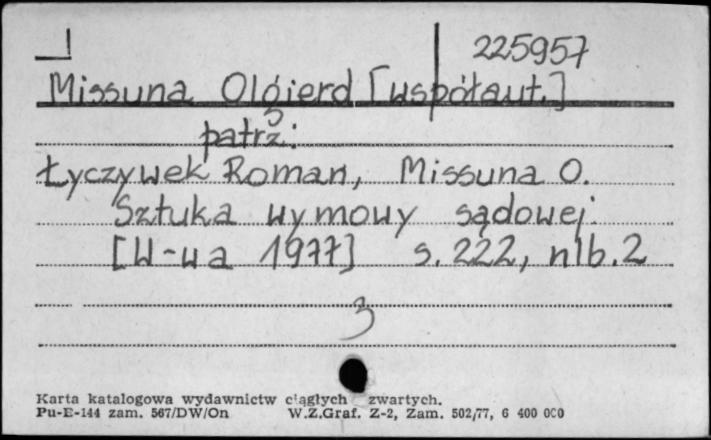 225957
Missuna Olgierd [współaut.]
patrz:
Łyczywek Roman, Missuna O.
Sztuka wymowy sądowej.
[W-wa 1977] s. 222, nlb. 2
3
Karta katalogowa wydawnictw ciągłych zwartych.
Pu-E-144 zam. 567/DW/On W.Z.Graf. Z-2, Zam. 502/77, 6 400 000